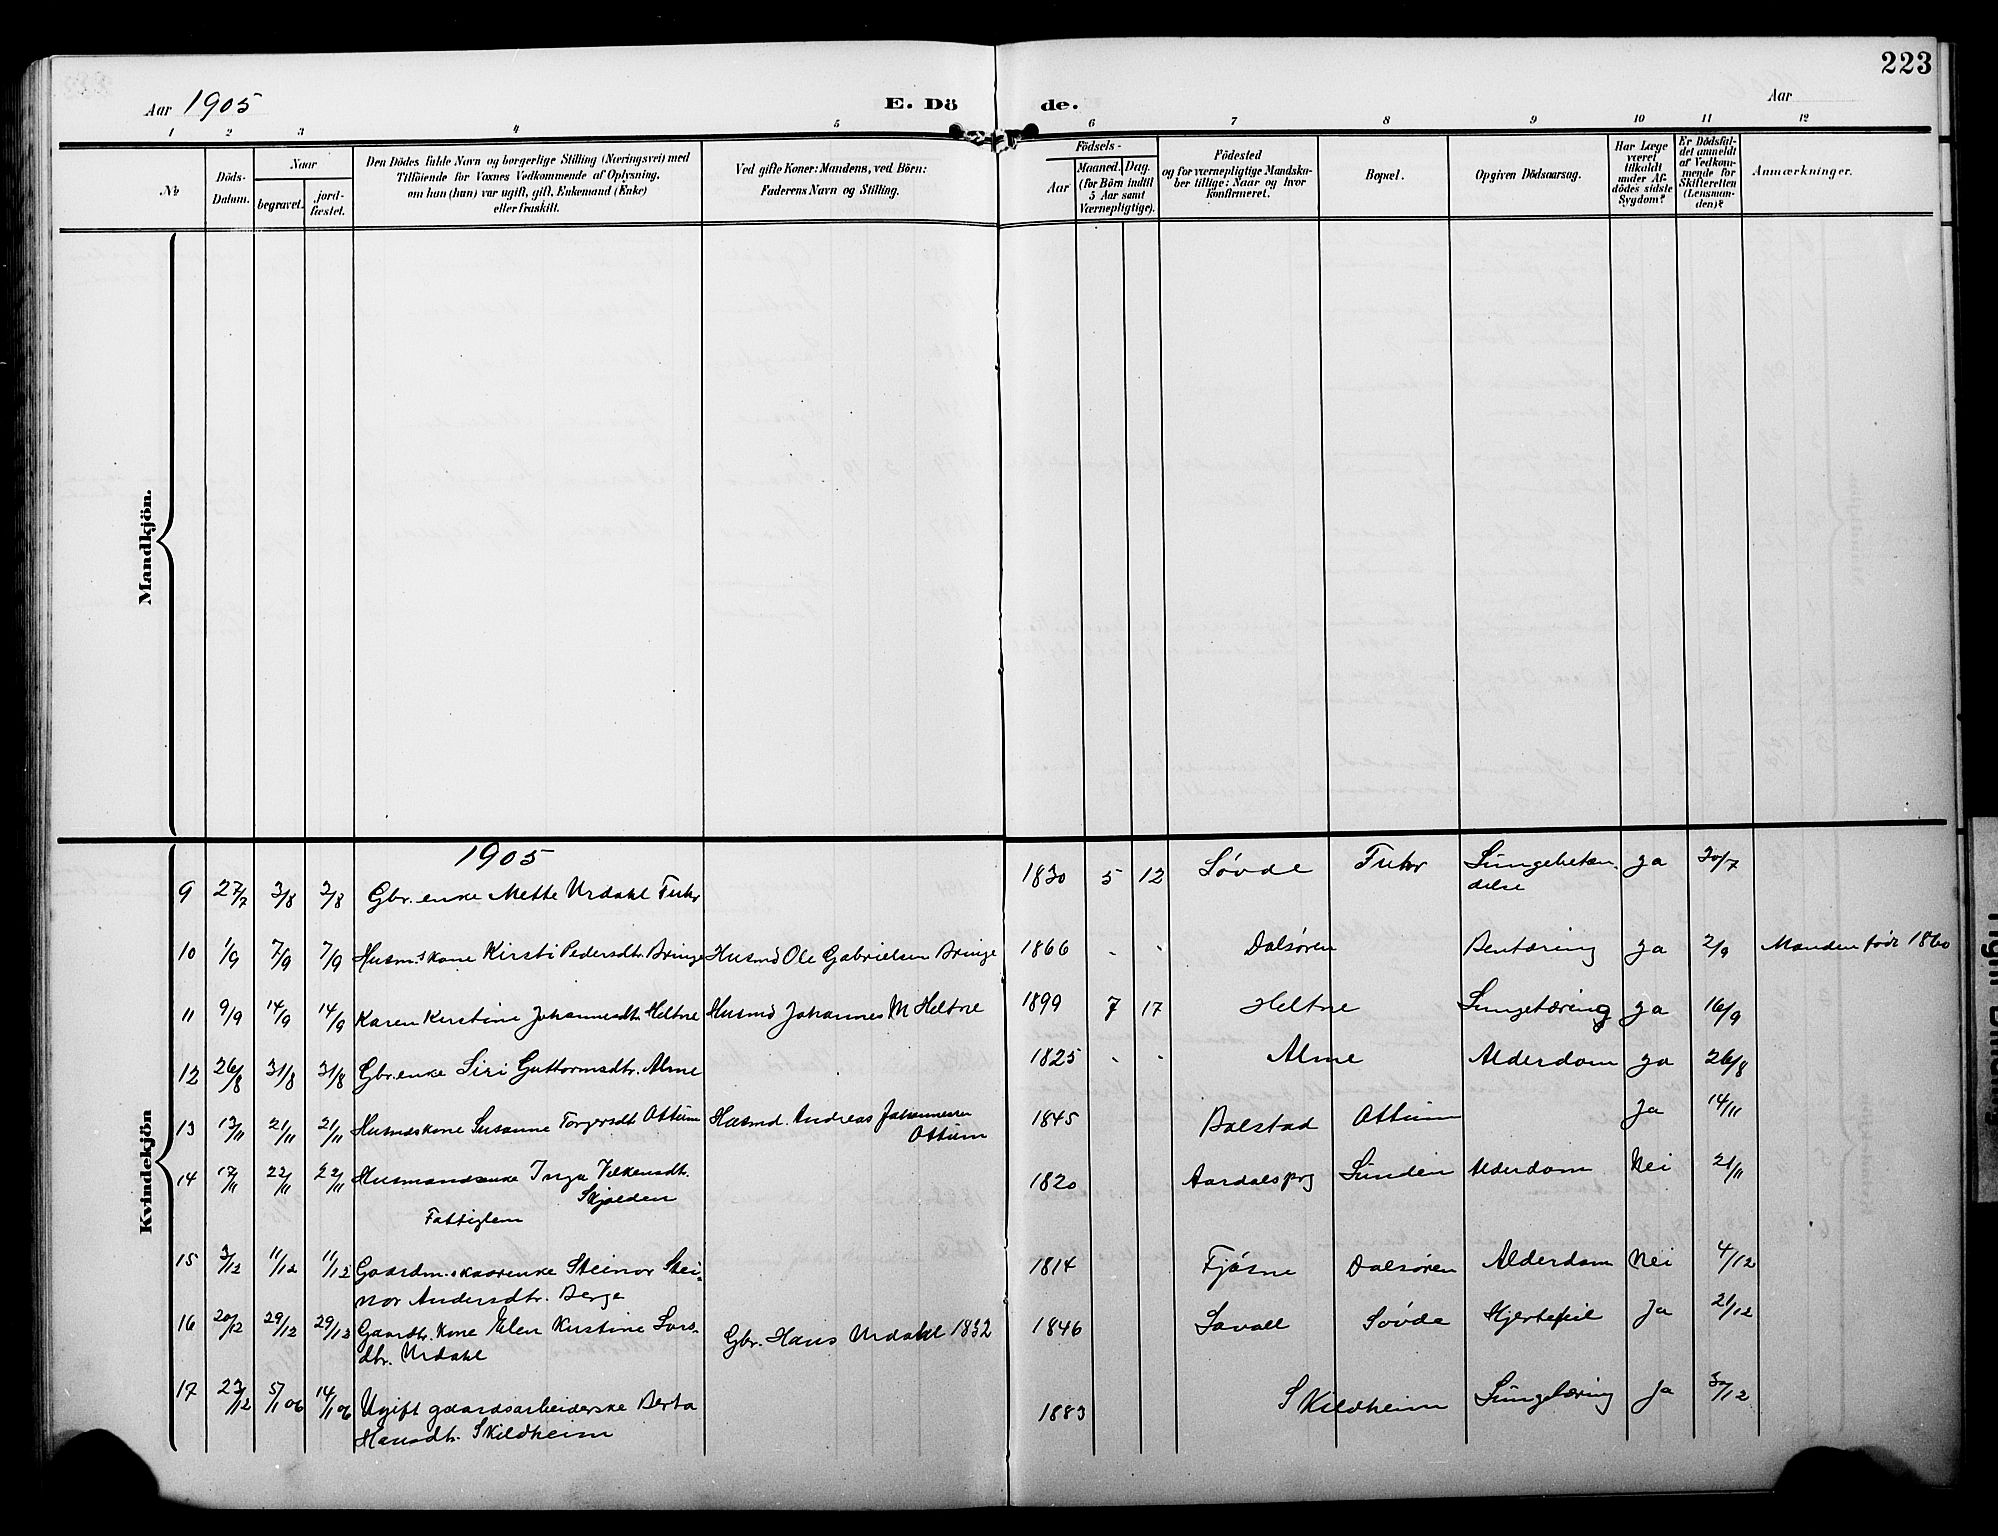 223
Aar 1905
E. Dö de.
Aar
1 2 3 4 5 6 7 8 9 10 11 12
No
Döds-
Datum.
Naar
begravet.
jord-
fæstet.
Den Dödes fulde Navn og borgerlige Stilling (Næringsvei) med
Tilföiende for Voxnes Vedkommende af Oplysning,
om han (hun) var ugift, gift, Enkemand (Enke)
eller fraskilt.
Ved gifte Koner: Mandens, ved Börn:
Faderens Navn og Stilling.
Födsels-
Aar
Maaned. Dag.
(for Börn indtil
5 Aar samt
Værnepligtige).
Födested
og for værnepligtige Mandska-
ber tillige: Naar og hvor
konfirmeret.
Bopæl.
Opgiven Dödsaarsag.
Har Læge
været
tilkaldt
under Af-
dödes sidste
Sygdom?
Er Dödsfal-
det anmeldt
af Vedkom-
mende for
Skifteretten
(Lensman-
den)?
Anmærkninger.
Mandkjön.
Kvindekjön
1905
9 27/7 3/8 3/8 Gbr. enke Mette Urdahl Fuhr 1830 5 12 Søvde Fuhr Lungebetæn- ja 30/7
delse
10 1/9 7/9 7/9 Husm.skone Kirsti Pedersdtr. Bringe Husmd Ole Gabrielsen Bringe 1866 - - Dalsøren Bentæring ja 2/9 Manden født 1860
11 9/9 14/9 14/9 Karen Kirstine Johannesdtr. Heltne Husmd Johannes M Heltne 1899 7 17 Heltne Lungetæring ja 16/9
12 26/8 31/8 31/8 Gbr. enke Siri Guttormsdtr. Alme 1825 - - Alme Alderdom ja 26/8
13 13/11 21/11 21/11 Husmdskone Susanne Torgersdt Ottum Husmd. Andreas Johannessen 1845 Bolstad Ottum Ja 14/11
Ottum
14 17/11 22/11 22/11 Husmandsenke Inga Vilkensdt. 1820 Aardalsprg Sunden Alderdom Nei 21/11
Skjolden
Fattiglem
15 3/12 11/12 11/12 Gaardm. enke Steinor Stei- 1814 Fjøsne Dalsøren Alderdom Nei 4/12
nor Andersdtr. Berge
16 20/12 29/12 29/12 Gaardbr. kone Elen Kirstine Lars- Gbr. Hans Urdahl 1832 1846 Søvde Hjertefeil Ja 21/12
dtr. Urdahl
17 23/12 5/1 06 14/1 06 Ugift gaardsarbeiderske Berta 1883 Skildheim Lungetæring Ja 30/12
Hansdtr. Skildheim